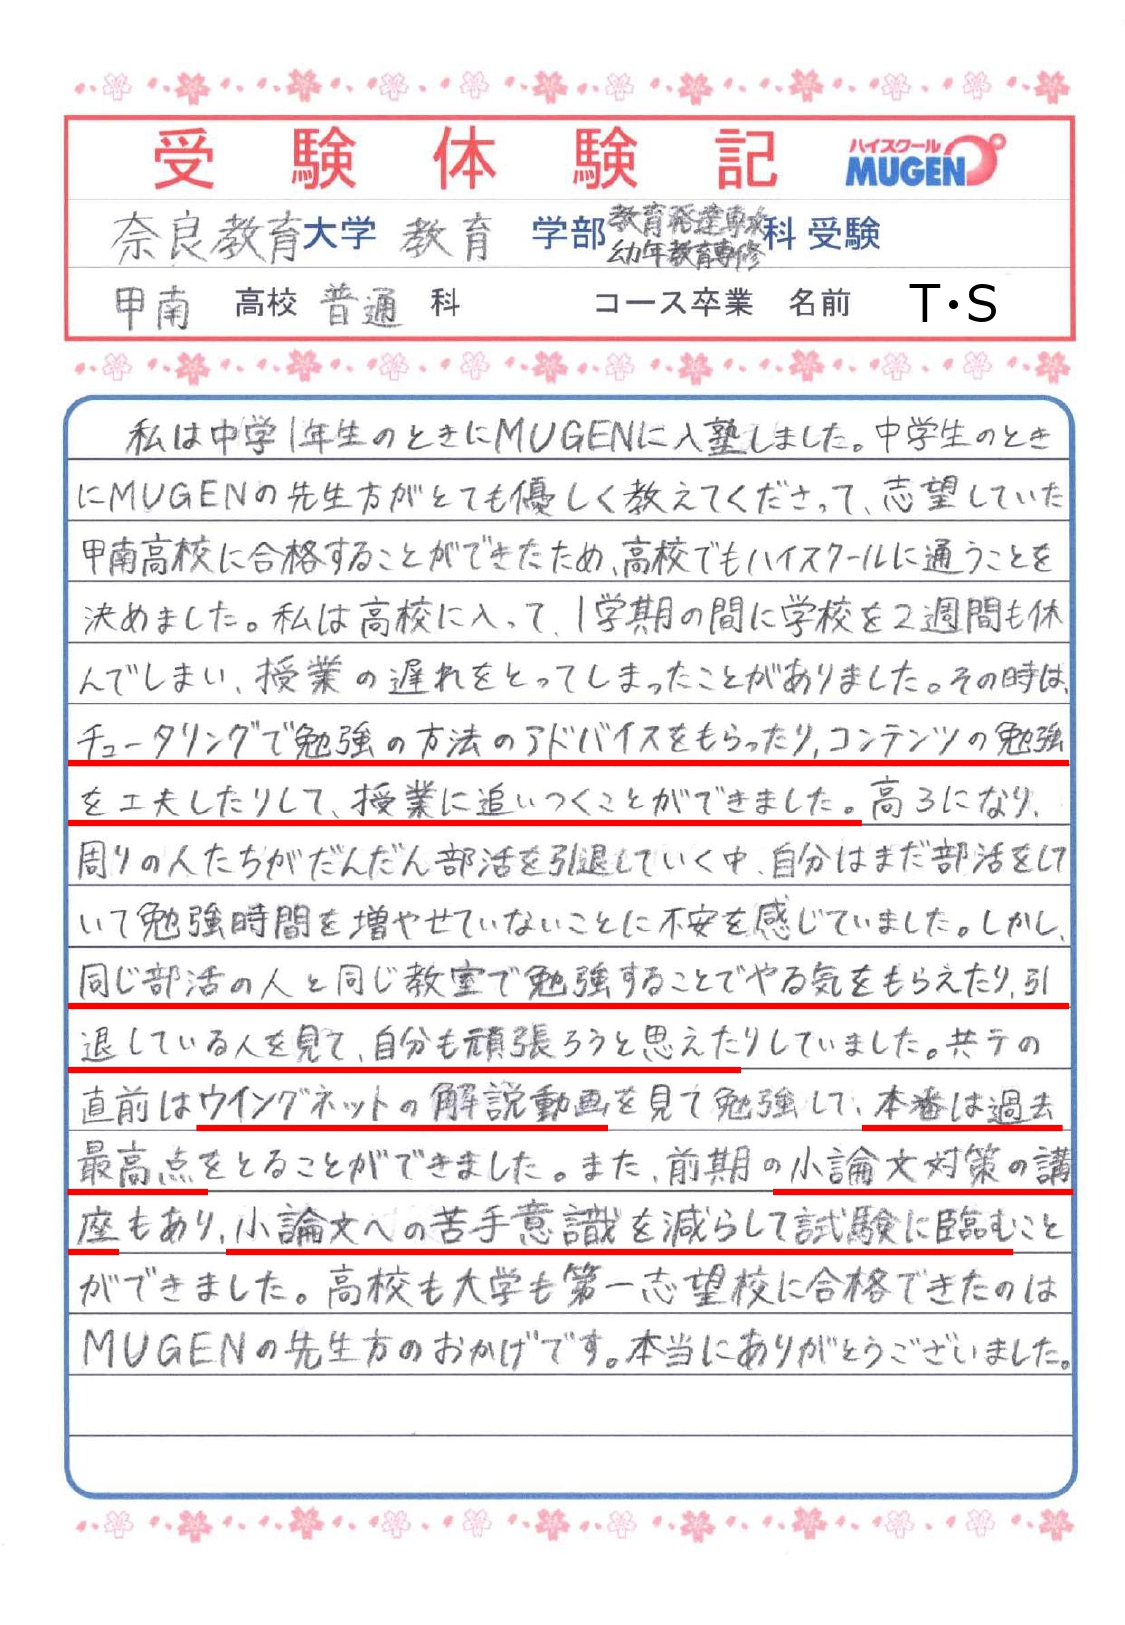 受験体験記 ハイスクール MUGEN
奈良教育大学 教育 学部 教育発達専攻 幼年教育専修 科 受験
甲南 高校 普通 科 コース卒業 名前 T・S
私は中学1年生のときにMUGENに入塾しました。中学生のとき
にMUGENの先生方がとても優しく教えてくださって、志望していた
甲南高校に合格することができたため、高校でもハイスクールに通うことを
決めました。私は高校に入って、1学期の間に学校を2週間も休
んでしまい、授業の遅れをとってしまったことがありました。その時は、
チュータリングで勉強の方法のアドバイスをもらったり、コンテンツの勉強
を工夫したりして、授業に追いつくことができました。高3になり、
周りの人たちがだんだん部活を引退していく中、自分はまだ部活をして
いて勉強時間を増やせていないことに不安を感じていました。しかし、
同じ部活の人と同じ教室で勉強することでやる気をもらえたり、引
退している人を見て、自分も頑張ろうと思えたりしていました。共テの
直前はウイングネットの解説動画を見て勉強して、本番は過去
最高点をとることができました。また、前期の小論文対策の講
座もあり、小論文への苦手意識を減らして試験に臨むこと
ができました。高校も大学も第一志望校に合格できたのは
MUGENの先生方のおかげです。本当にありがとうございました。